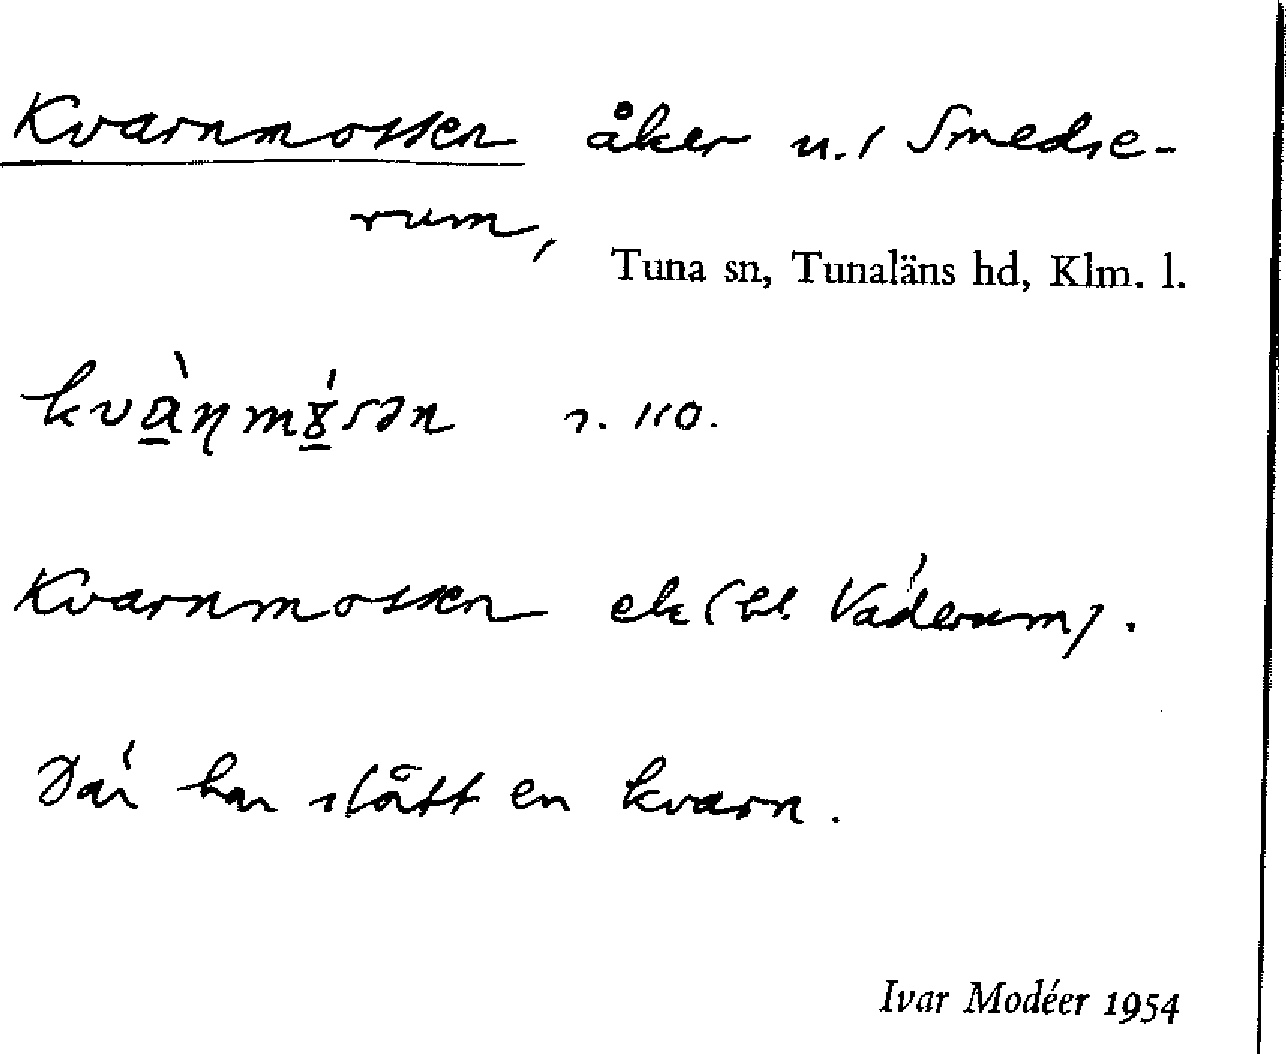 Kvarnmossen åker u. / Smedse-
rum,
Tuna sn, Tunaläns hd, Klm. l.
kvàɳmósən s. 110.
Kvarnmossen ek (bl Väderum).
Där har stått en kvarn.
Ivar Modéer 1954